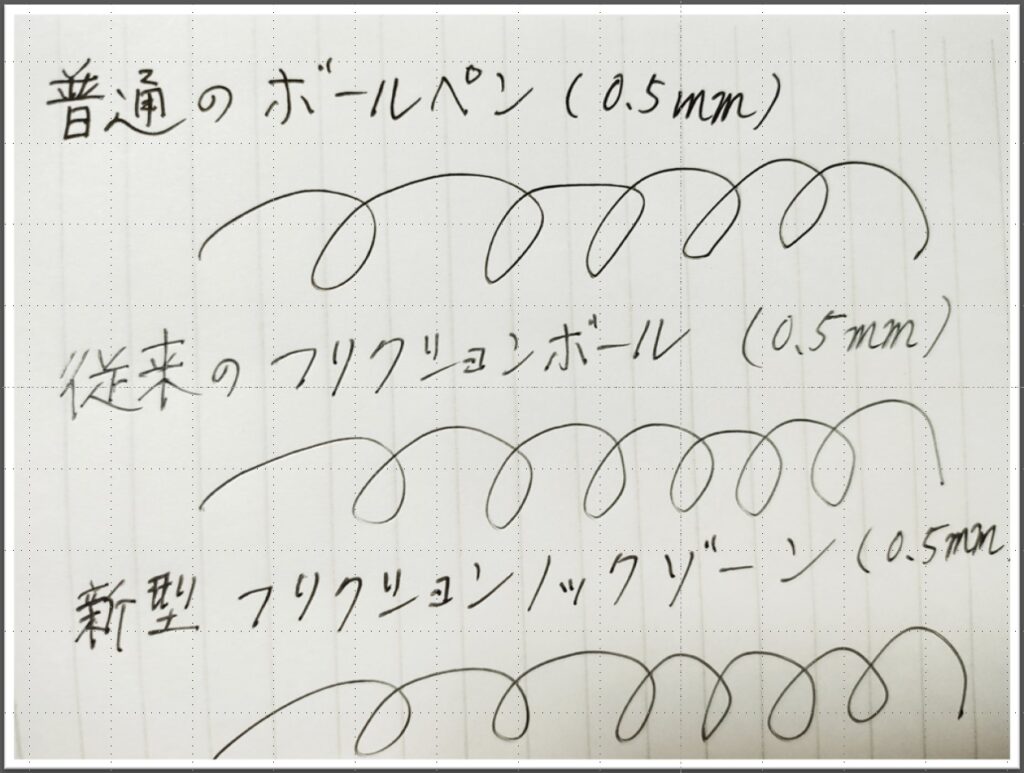 普通のボールペン(0.5mm)
従来のフリクションボール(0.5mm)
新型フリクションノックゾーン(0.5mm